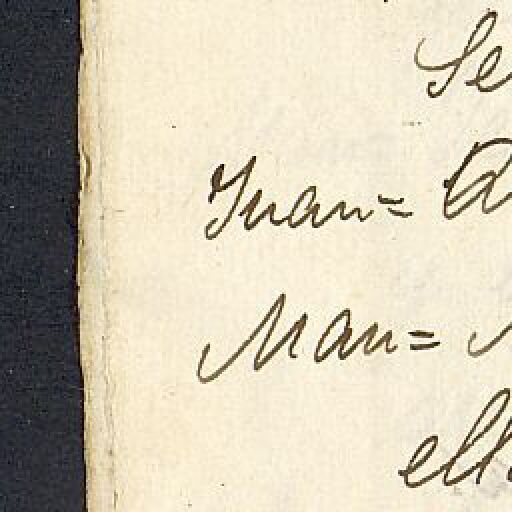 Se
Juan=
Man=
ell